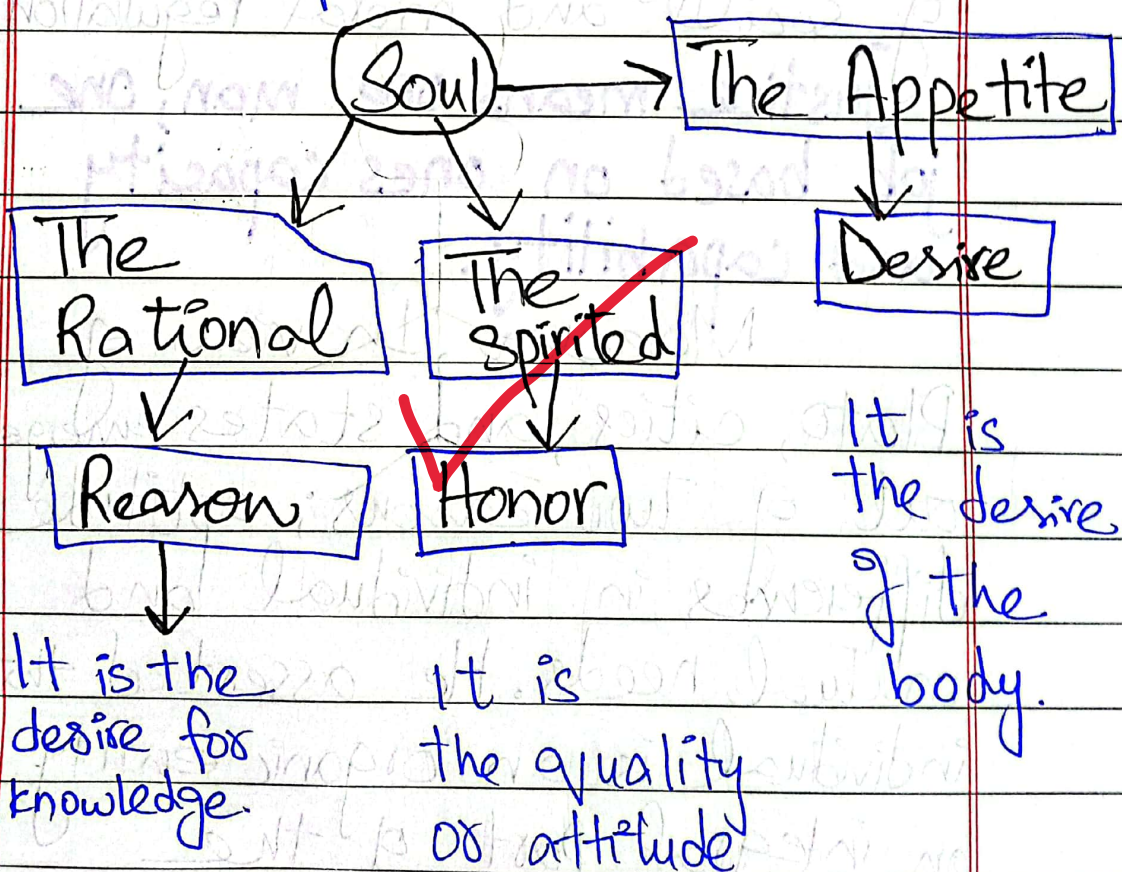 Soul
The Appetite
The
Rational
The
spirited
Desire
Reason
Honor
It is the
desire for
knowledge.
It is
the quality
or attitude
It is
the desire
of the
body.